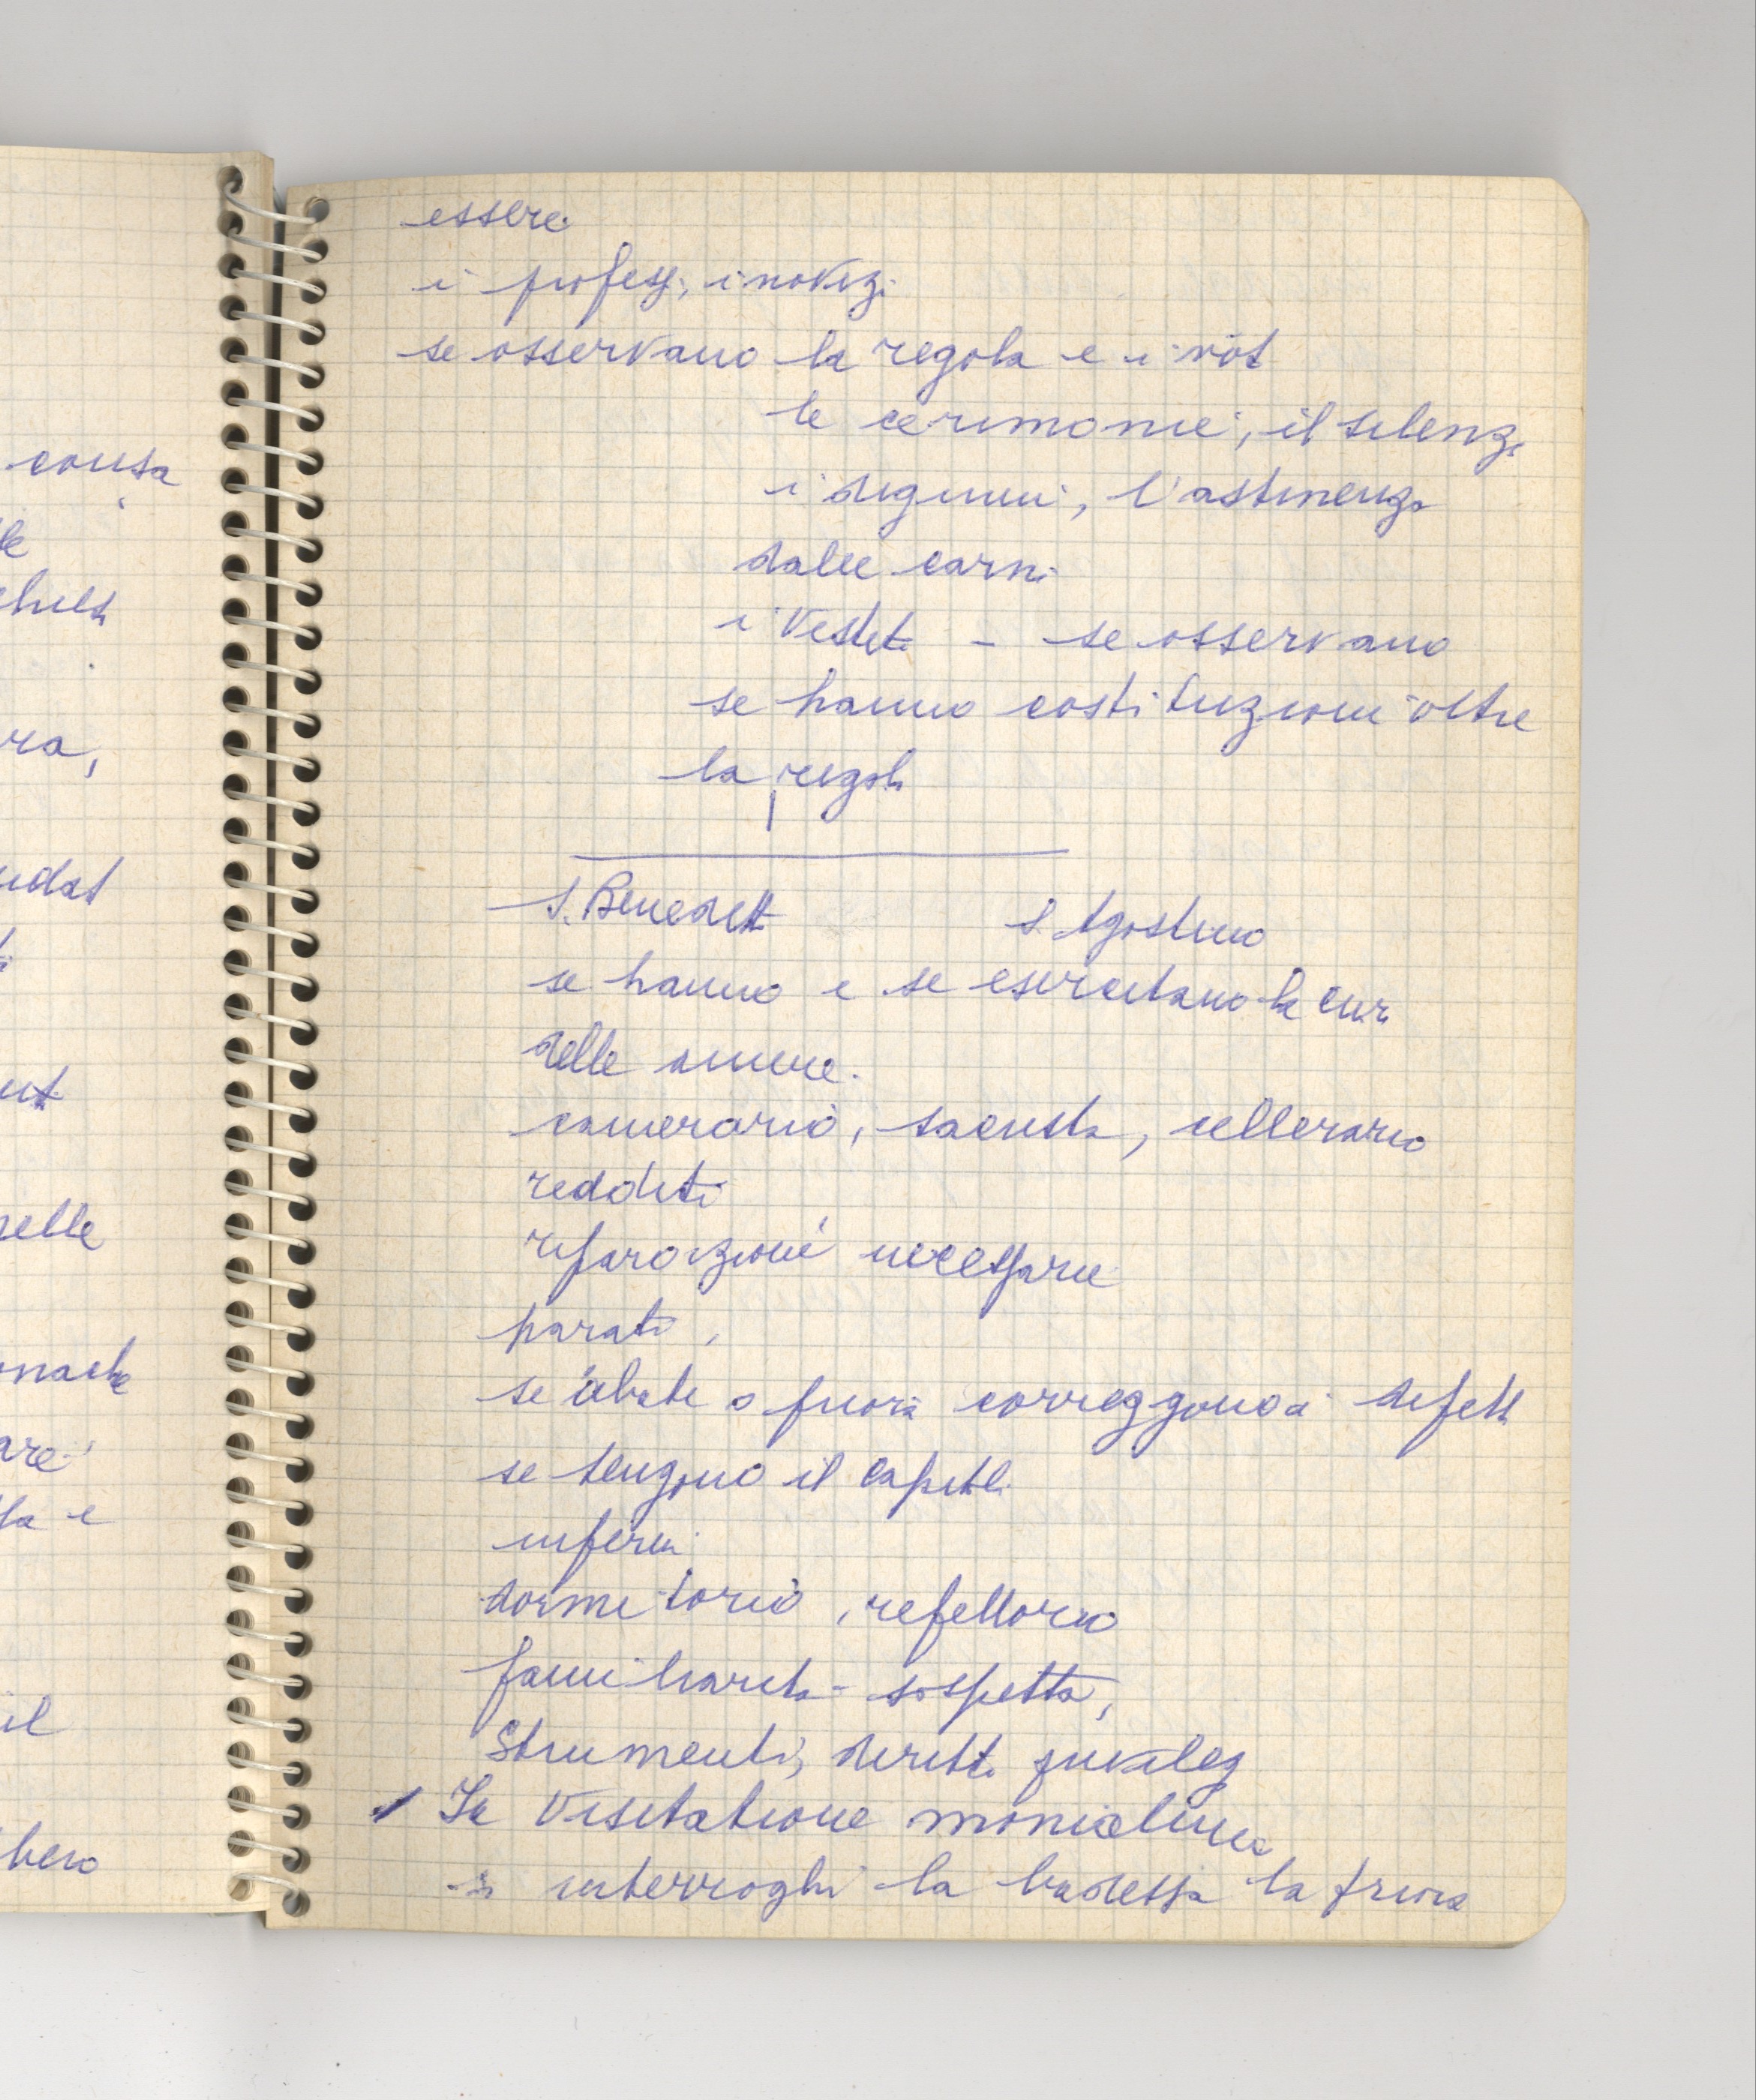 essere
i professi, i novizi
se osservano la regola e i voti
le cerimonie, il silenzio
i digiuni, l'astinenza
dalle carni
i vestiti - se osservano
se hanno costituzioni oltre
la regola
S. Benedetto S. Agostino
se hanno e se esercitano la cura
delle anime.
camerario, sacrista, cellerario
redditi
riparazioni necessarie
parati,
se abate o priori correggono i difetti
se tengono il capitolo
infermi
dormitorio, refettorio
familiarità - sospetta,
Strumenti, diritti privilegi
In Visitatione monialium
si interroghi la badessa la priora
causa
ra,
nelle
onache
are
il